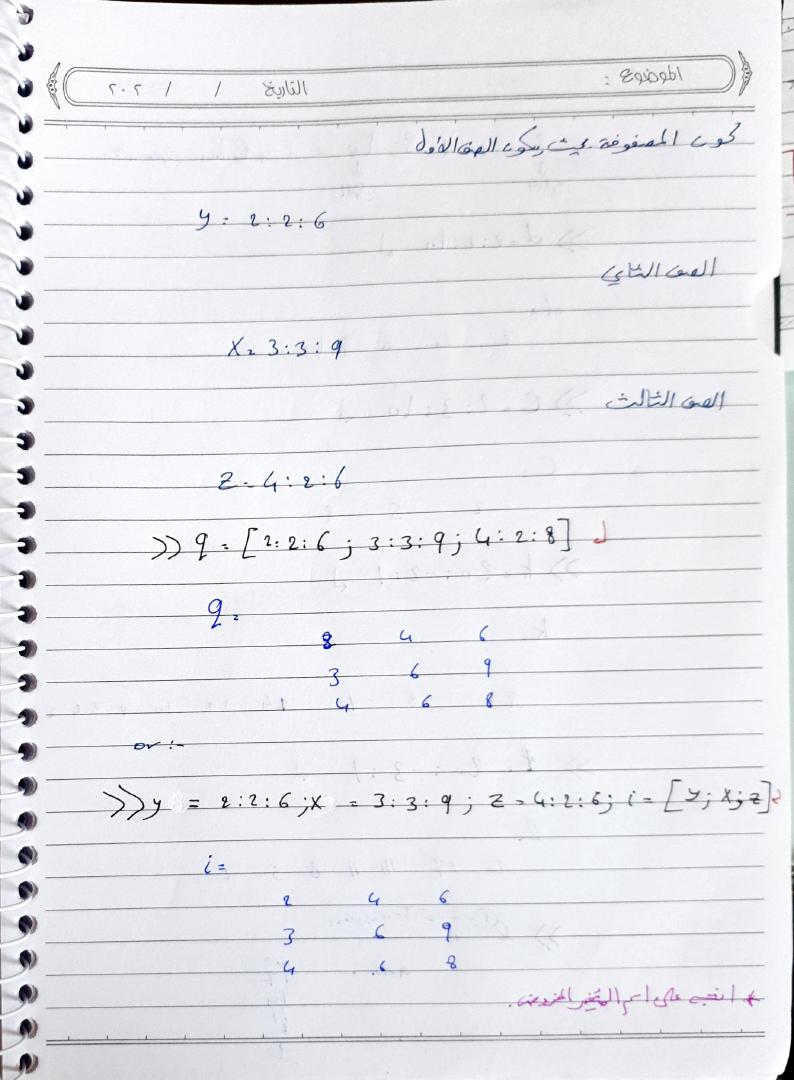 الموضوع :
التاريخ / / ٢٠٢
كون المصفوفة بحيث يكون الصف الأول
y = 2:2:6
الصف الثاني
X = 3:3:9
الصف الثالث
Z = 4:2:6
>> q = [2:2:6 ; 3:3:9 ; 4:2:8]
q =
8 4 6
3 6 9
4 6 8
or :-
>> y = 2:2:6 ; X = 3:3:9 ; Z = 4:2:6 ; i = [y; X; z]
i =
2 4 6
3 6 9
4 6 8
* انتبه على اسم المتغير المفروض.